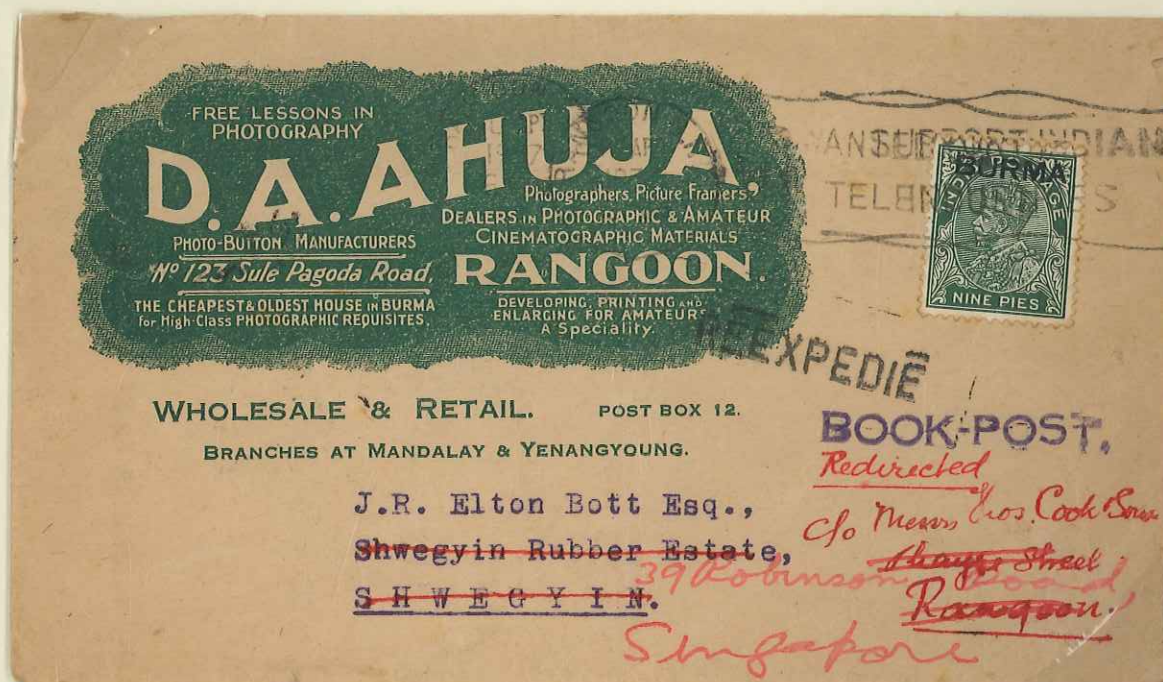 FREE LESSONS IN
PHOTOGRAPHY
D. A. AHUJA
Photographers, Picture Framers,
DEALERS IN PHOTOGRAPHIC & AMATEUR
CINEMATOGRAPHIC MATERIALS
PHOTO-BUTTON MANUFACTURERS
Nº 123 Sule Pagoda Road,
RANGOON.
THE CHEAPEST & OLDEST HOUSE IN BURMA
for High-Class PHOTOGRAPHIC REQUISITES.
DEVELOPING, PRINTING AND
ENLARGING FOR AMATEURS
A Speciality.
SUPPORT INDIAN
BURMA
NINE PIES
REEXPEDIÉ
WHOLESALE & RETAIL. POST BOX 12.
BRANCHES AT MANDALAY & YENANGYOUNG.
BOOK-POST.
Redirected
c/o Messrs Thos. Cook & Son
Street
Rangoon.
J.R. Elton Bott Esq.,
Shwegyin Rubber Estate,
SHWEGYIN.
39 Robinson Road,
Singapore